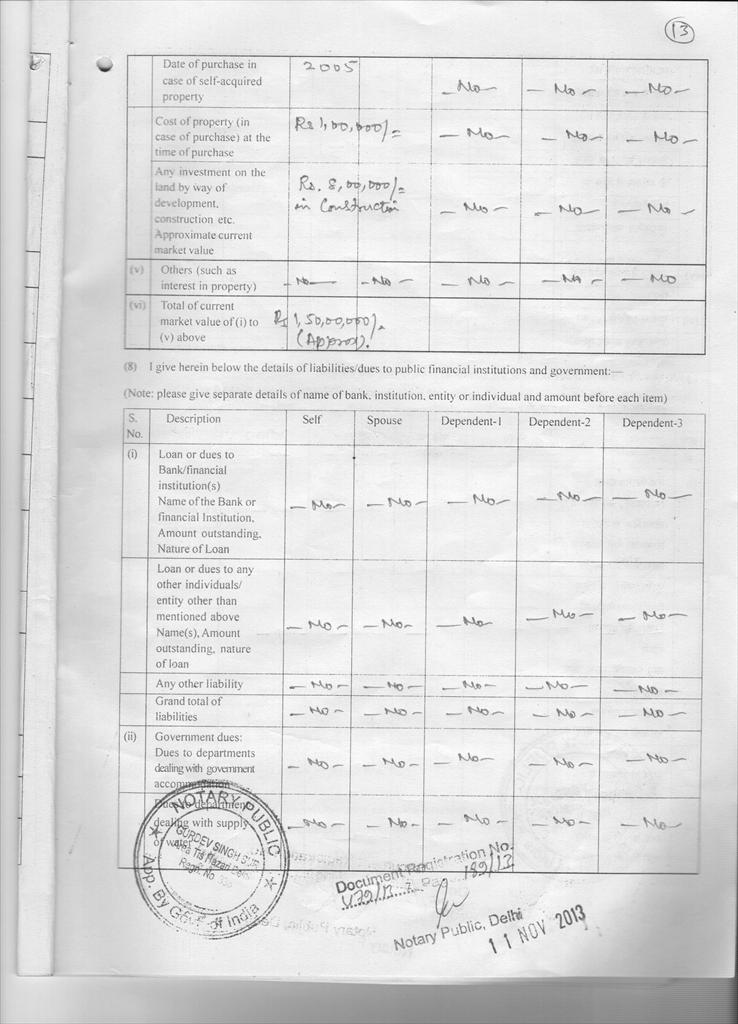 13
Date of purchase in
case of self-acquired
property
2005
- No - - No - - No -
Cost of property (in
case of purchase) at the
time of purchase
Rs 1,00,000/=
- No - - No - - No -
Any investment on the
land by way of
development,
construction etc.
Approximate current
market value
Rs. 8,00,000/=
in Construction
- No - - No - - No -
(v) Others (such as
interest in property)
- No - - No - - No - - No - - No
(vi) Total of current
market value of (i) to
(v) above
Rs 1,50,00,000/.
(Approx).
(8) I give herein below the details of liabilities/dues to public financial institutions and government:—
(Note: please give separate details of name of bank, institution, entity or individual and amount before each item)
S. No. Description Self Spouse Dependent-1 Dependent-2 Dependent-3
(i) Loan or dues to
Bank/financial
institution(s)
Name of the Bank or
financial Institution,
Amount outstanding,
Nature of Loan
- No - - No - - No - - No - - No -
Loan or dues to any
other individuals/
entity other than
mentioned above
Name(s), Amount
outstanding, nature
of loan
- No - - No - - No - - No - - No -
Any other liability - No - - No - - No - - No - - No -
Grand total of
liabilities
- No - - No - - No - - No - - No -
(ii) Government dues:
Dues to departments
dealing with government
accommodation
- No - - No - - No - - No - - No -
Dues to department
dealing with supply
of water
- No - - No - - No - - No - - No -
NOTARY PUBLIC
GURDEV SINGH
Area Tis Hazari Delhi
Regn. No
App. By Govt. of India
Document Registration No.
189/13
Notary Public, Delhi
11 NOV 2013